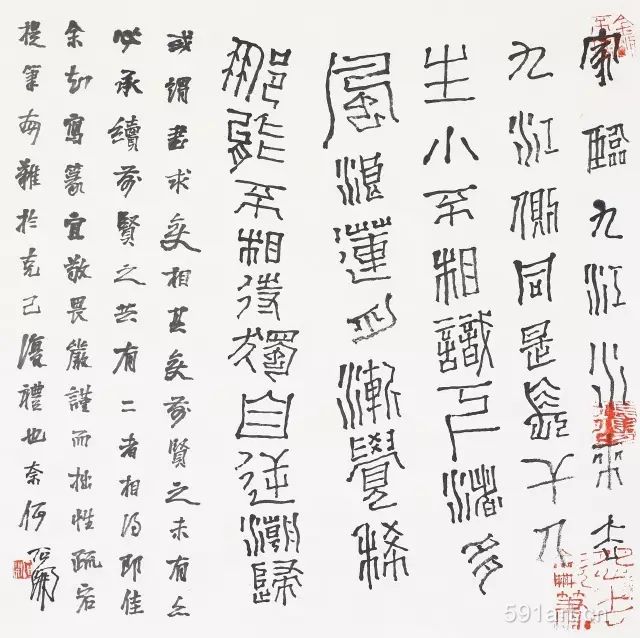 家臨九江水來去
九江側同是長干人
生小不相識下渚多
風浪蓮舟漸覺稀
那能不相待獨自逆潮歸
或謂書求變相其變前賢之未有亦
必承續前賢之共有二者相得即佳
余知寫篆宜敬畏嚴謹而拙性疏宕
提筆每難於克己復禮也奈何 石開